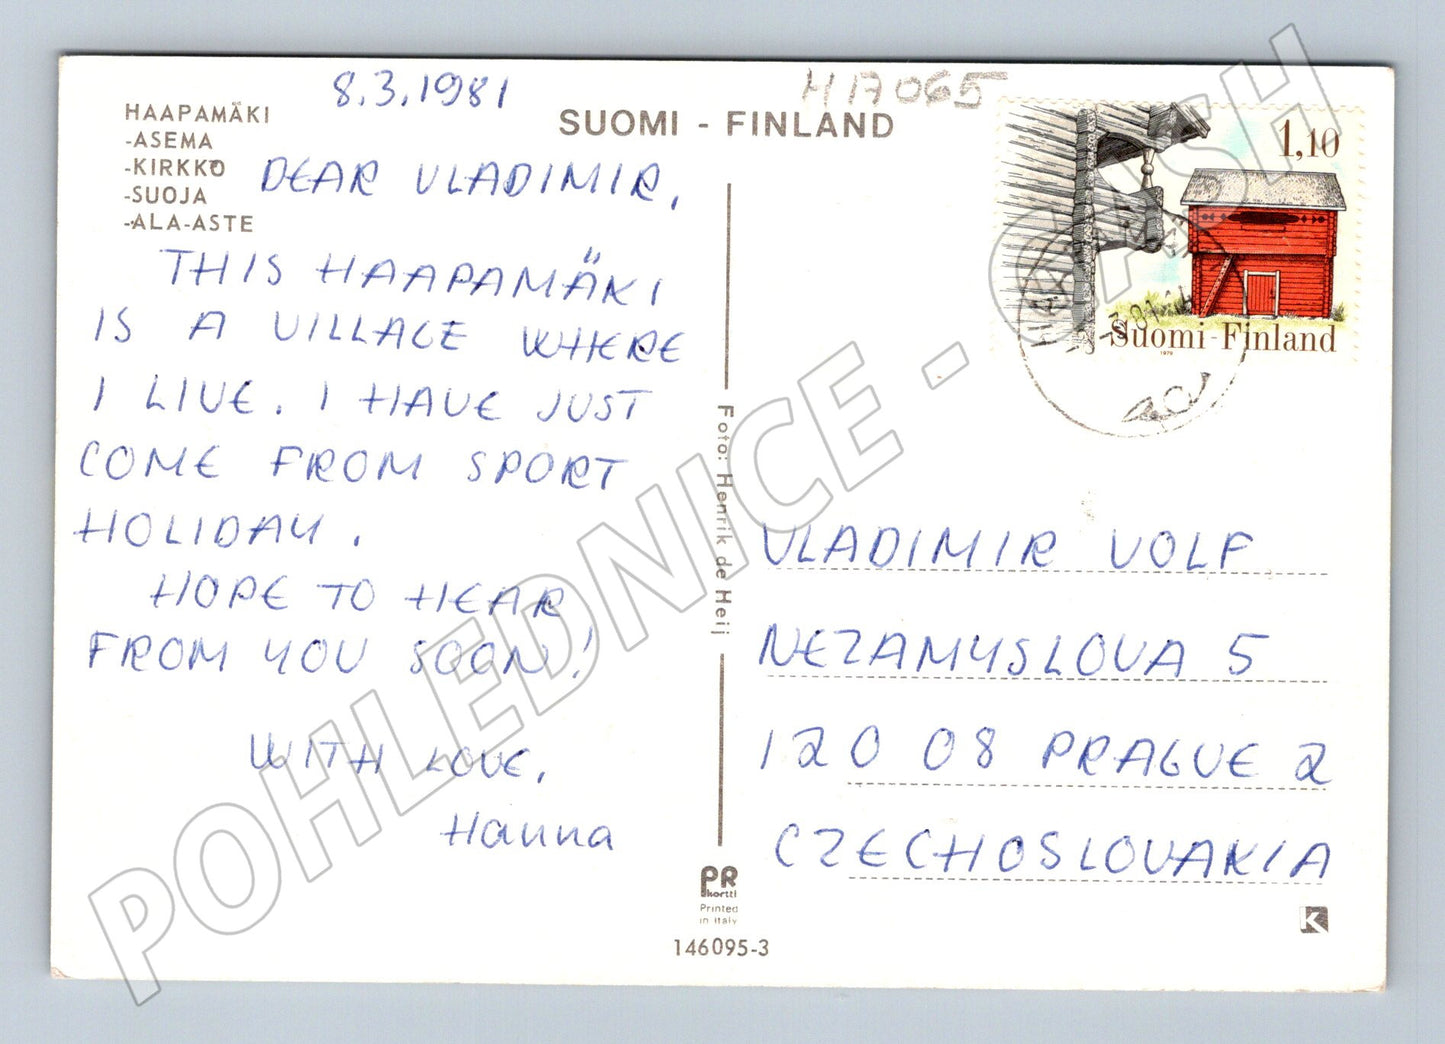 8.3.1981
HA065
HAAPAMÄKI
-ASEMA
-KIRKKO
-SUOJA
-ALA-ASTE
SUOMI - FINLAND
1,10
Suomi-Finland
1979
DEAR VLADIMIR,
THIS HAAPAMÄKI
IS A VILLAGE WHERE
I LIVE. I HAVE JUST
COME FROM SPORT
HOLIDAY.
HOPE TO HEAR
FROM YOU SOON!
WITH LOVE,
Hanna
Foto: Henrik de Heij
VLADIMIR VOLF
NEZAMYSLOVA 5
120 08 PRAGUE 2
CZECHOSLOVAKIA
PR
kortti
Printed
in Italy
146095-3
K
POHLEDNICE - CASH